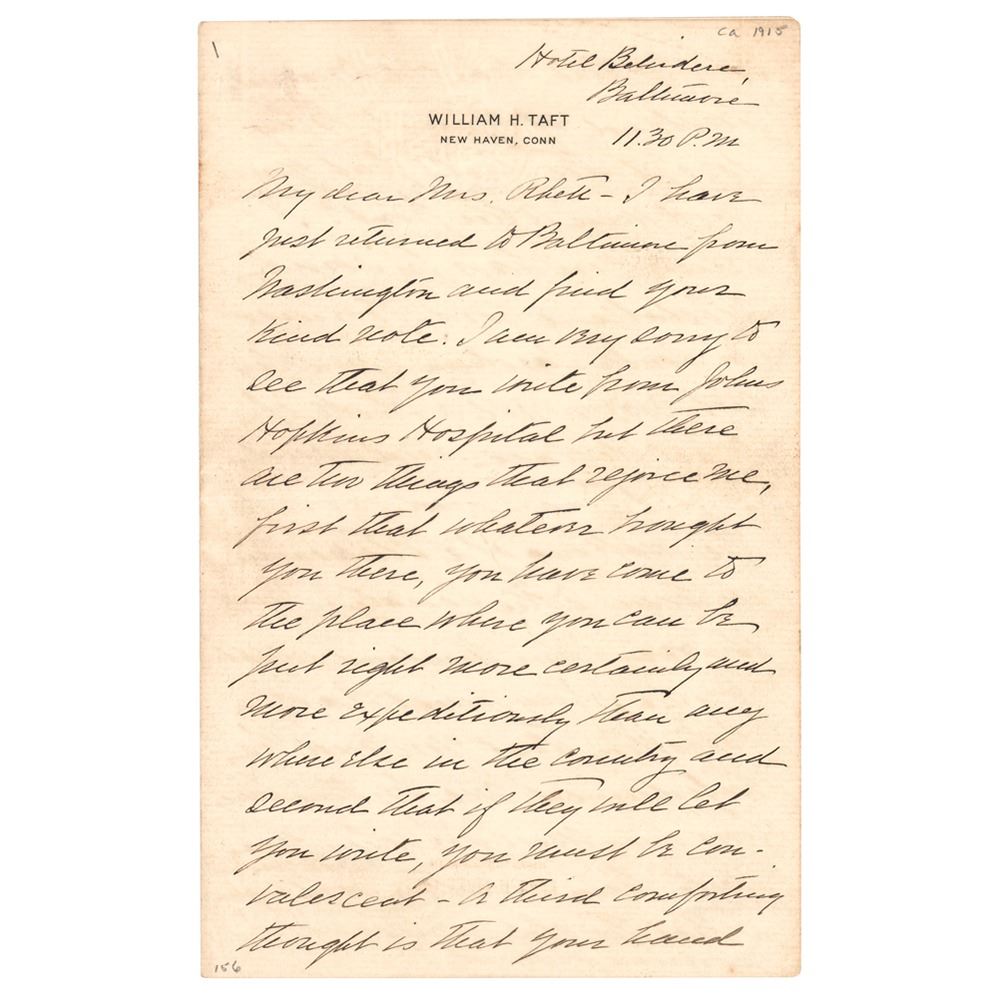 \ ca 1915
Hotel Belvidere,
Baltimore
WILLIAM H. TAFT
NEW HAVEN, CONN
11.30 P.M
My dear Mrs. Rhett - I have
just returned to Baltimore from
Washington and find your
kind note. I am very sorry to
see that you write from Johns
Hopkins Hospital but there
are two things that rejoice me,
first that whatever brought
you there, you have come to
the place where you can be
put right more certainly and
more expeditiously than any
where else in the country and
second that if they will let
you write, you must be con-
valescent - A third comforting
thought is that your hand
156